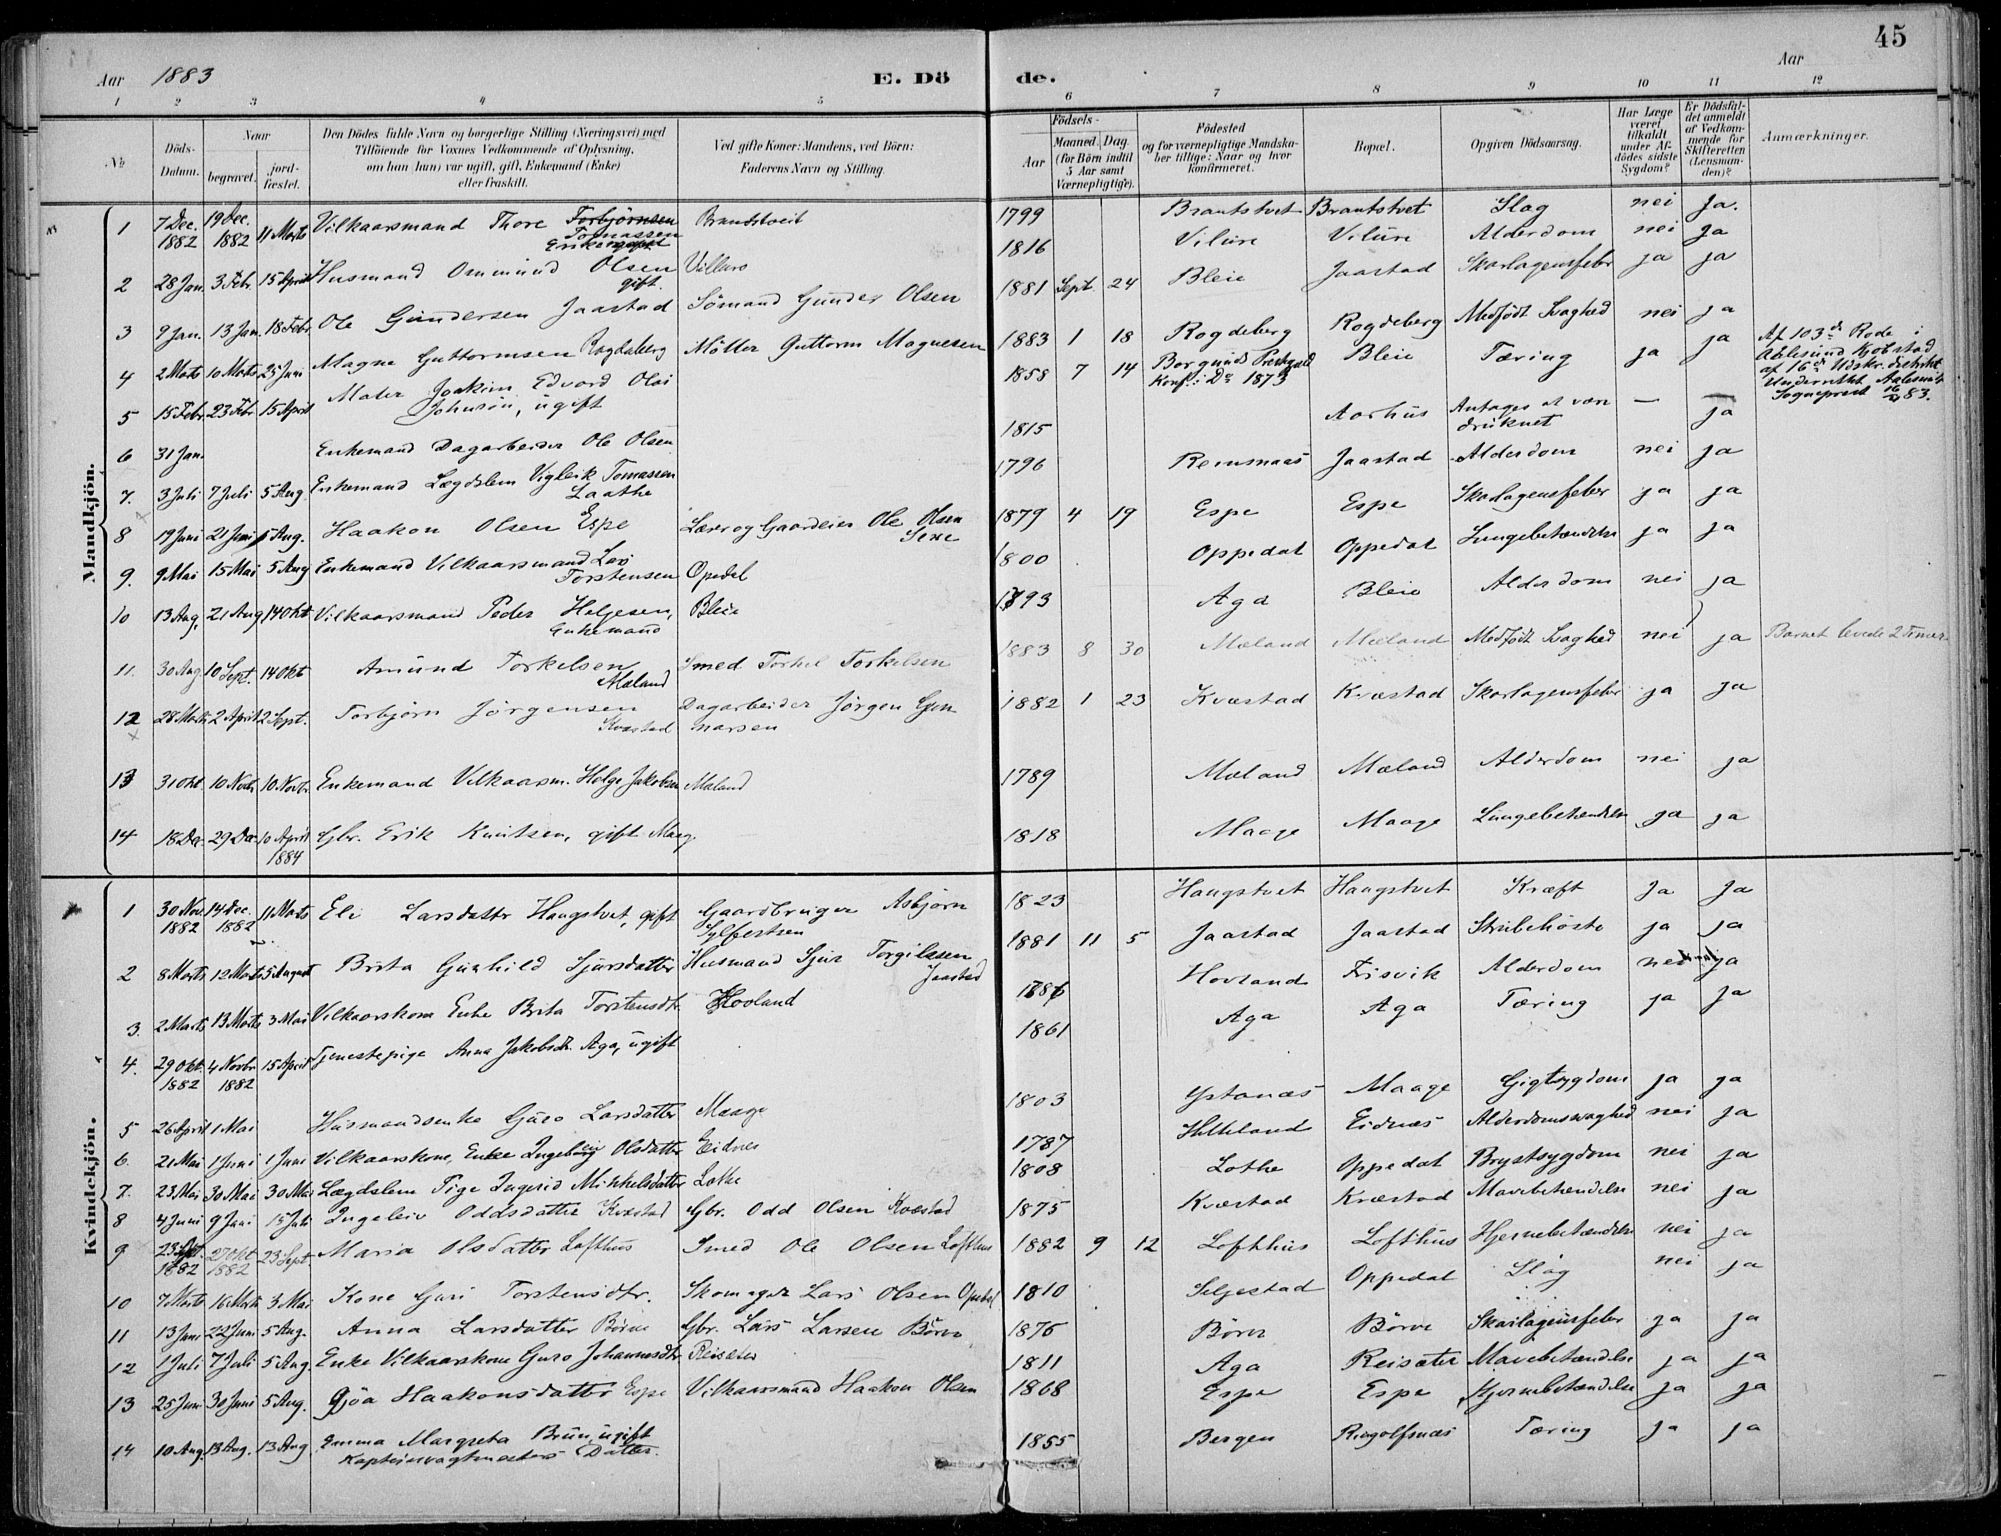 45
Aar 1883 E. Dö de. Aar
1 2 3 4 5 6 7 8 9 10 11 12
No Döds-Datum. Naar begravet. jordfæstet. Den Dödes fulde Navn og borgerlige Stilling (Næringsvei) med Tilföiende for Voxnes Vedkommende af Oplysning, om han (hun) var ugift, gift, Enkemand (Enke) eller fraskilt. Ved gifte Koner: Mandens, ved Börn: Faderens Navn og Stilling. Födsels- Aar Maaned. Dag. (for Börn indtil 5 Aar samt Værnepligtige). Födested og for værnepligtige Mandskaber tillige: Naar og hvor konfirmeret. Bopæl. Opgiven Dödsaarsag. Har Læge været tilkaldt under Afdödes sidste Sygdom? Er Dödsfaldet anmeldt af Vedkommende for Skifteretten (Lensmanden)? Anmærkninger.
Mandkjön.
1 7 Dec. 1882 19 Dec. 1882 11 Marts Vilkaarsmand Thore Torbjörnsen Tomassen Enkemand Brandstveit 1799 Brautstvet Brautstvet Slag nei Ja.
2 28 Jan. 3 Febr. 15 April Husmand Ommund Olsen gift. Villure 1816 Vilure Vilure Alderdom nei ja
3 9 Jan. 13 Jan. 18 Febr. Ole Gundersen Jaastad Sömand Gunder Olsen 1881 Sept. 24 Bleie Jaastad Skarlagensfeber ja ja
4 2 Marts 10 Marts 25 Juni Magne Guttormsen Rogdeberg Möller Guttorm Magnesen 1883 1 18 Rogdeberg Rogdeberg Medfödt Svaghed nei ja
5 15 Febr. 23 Febr. 15 April Maler Joakim Edvard Olai Johnsön, ugift 1858 7 14 Borgunds Prestgjeld Konf. i Do 1873 Bleie Tæring ja ja Af 103de Rode i Aalesund Kjöbstad af 16de Udskr. distrikt. Underrettet Aalesunds Sogneprest 83.
6 31 Jan. Enkemand Dagarbeider Ole Olsen 1815 Aarhus Antages at være druknet — ja
7. 3 Juli 7 Juli 5 Aug. Enkemand Lægdslem Vigleik Tomassen Laathe 1796 Remmaas Jaastad Alderdom nei ja
8 19 Juni 21 Juni 5 Aug. Haakon Olsen Espe Lærer og Gaardeier Ole Olsen Sexe 1879 4 19 Espe Espe Skarlagensfeber ja ja
9. 9 Mai 15 Mai 5 Aug Enkemand Vilkaarsmand Lars Torstensen Opedal 1800 Oppedal Oppedal Lungebetændelse ja ja
10 13 Aug. 21 Aug 14 Okt Vilkaarsmand Peder Helgesen, Enkemand Bleie 1793 Aga Bleie Alderdom nei ja
11. 30 Aug 10 Sept. 14 Okt Amund Torkelsen Mæland Smed Torkel Torkelsen 1883 8 30 Mæland Mæland Medfödt Svaghed nei ja Barnet levede 2 Timer
12 28 Marts 2 April 2 Sept. Torbjörn Jörgensen Kvæstad Dagarbeider Jörgen Gunnarsen 1882 1 23 Kvæstad Kvæstad Skarlagensfeber ja ja
13 31 Okt. 10 Novb. 10 Novbr. Enkemand Vilkaarsm. Helge Jakobsen Mæland 1789 Mæland Mæland Alderdom nei ja
14 18 Dec. 29 Dec. 10 April 1884 Gbr. Erik Knutsen, gift Maage. 1818 Maage Maage Lungebetændelse ja ja
Kvindekjön.
1 30 Nov. 1882 14 Dec. 1882 11 Marts Eli Larsdatter Haugstvet, gift Gaardbruger Asbjörn Sylfestsen 1823 Haugstvet Haugstvet Kræft Ja Ja
2 8 Marts 12 Marts 5 August Brita Gunhild Sjursdatter Husmand Sjur Torgilssen Jaastad 1881 11 5 Jaastad Jaastad Strubehoste ja ja
3. 2 Marts 13 Marts 3 Mai Vilkaarskone Enke Brita Torstensdtr. Hovland 1786 Hovland Frisvik Alderdom nei ja
4. 29 Okt. 1882 4 Novbr. 1882 15 April Tjenestepige Anna Jakobsdtr. Aga, ugift 1861 Aga Aga Tæring ja ja
5 26 April 1 Mai Husmandsenke Guro Larsdatter Maage 1803 Ystanæs Maage Gigtsygdom ja ja
6. 21 Mai 1 Juni 1 Juni Vilkaarskone, Enke Ingebjörg Olsdatter Eidnes 1787 Helleland Eidnæs Alderdomssvaghed nei ja
7. 23 Mai 30 Mai 30 Mai Lægdslem Pige Ingerid Mikkelsdatter Lothe 1808 Lothe Oppedal Brystsygdom nei ja
8 4 Juni 9 Juni 15 Juli Ingeleiv Oddsdatter Kvæstad Gbr. Odd Olsen Kvæstad 1875 Kvæstad Kvæstad Mavebetændelse nei ja
9 23 1882 27 Okt 1882 23 Sept. Maria Olsdatter Lofthus Smed Ole Olsen Lofthus 1882 9 12 Lofthus Lofthus Hjernebetændelse nei ja
10 7 Marts 16 Marts 3 Mai Kone Guri Torstensdtr. Skomager Lars Olsen Opedal 1810 Seljestad Oppedal Slag nei ja
11 13 Juni 22 Juni 5 Aug. Anna Larsdatter Börve Gbr. Lars Larsen Börve 1876 Börve Börve Skarlagensfeber ja ja
12 1 Juli 7 Juli 5 Aug. Enke Vilkaarskone Guro Johannesdtr. Reisæter 1811 Aga Reisæter Mavebetændelse ja ja
13 25 Juni 30 Juni 5 Aug. Gjöa Haakonsdatter Espe Vilkaarsmand Haakon Olsen 1868 Espe Espe Hjernebetændelse ja ja
14 10 Aug. 13 Aug. 13 Aug Emma Margreta Bruun, ugift Kapteinvagtmesters Datter. 1855 Bergen Ringolfsnæs Tæring ja ja